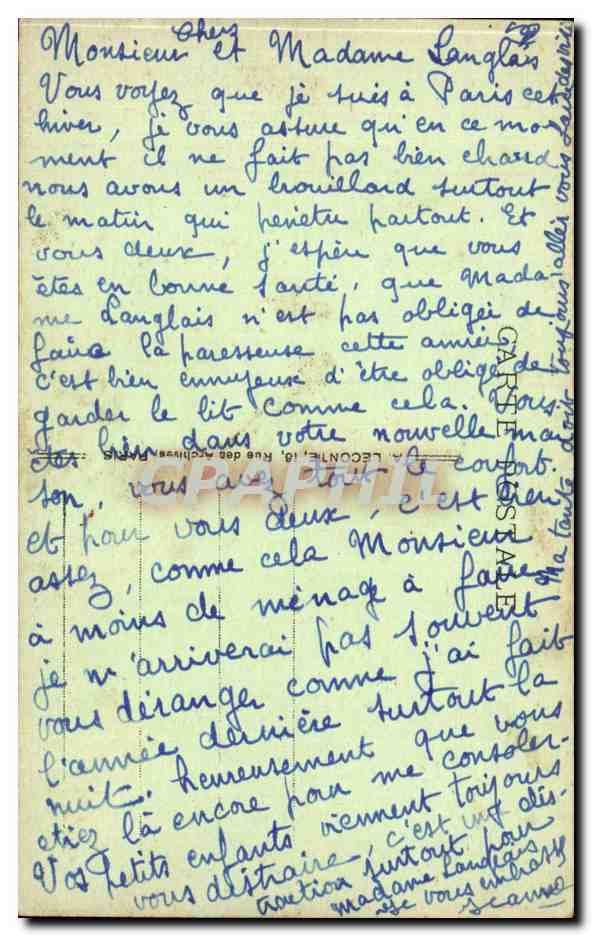 Chers
Monsieur et Madame Langlais
Vous voyez que je suis à Paris cet
hiver, je vous assure qu'en ce mo-
ment il ne fait pas bien chaud
nous avons un brouillard surtout
le matin qui penètre partout. Et
vous deux, j'espère que vous
êtes en bonne santé, que Mada-
me Langlais n'est pas obligée de
faire la paresseuse cette année
c'est bien ennuyeux d'être obligé de
garder le lit comme cela. Vous
êtes bien dans votre nouvelle mai
son, vous avez tout le confort.
et pour vous deux, c'est bien
assez, comme cela Monsieur
à moins de ménage à faire
je n'arriverai pas souvent
vous déranger comme j'ai fait
l'année dernière surtout la
nuit. heureusement que vous
etiez là encore pour me consoler-
Vos petits enfants viennent toujours
vous distraire, c'est une dis-
traction surtout pour
Madame Langlais
Je vous embrasse
Jeanne
Ma tante doit toujours aller vous
CARTE POSTALE
A. LECONTE, 18, Rue des Archives, PARIS
CPAPHIL